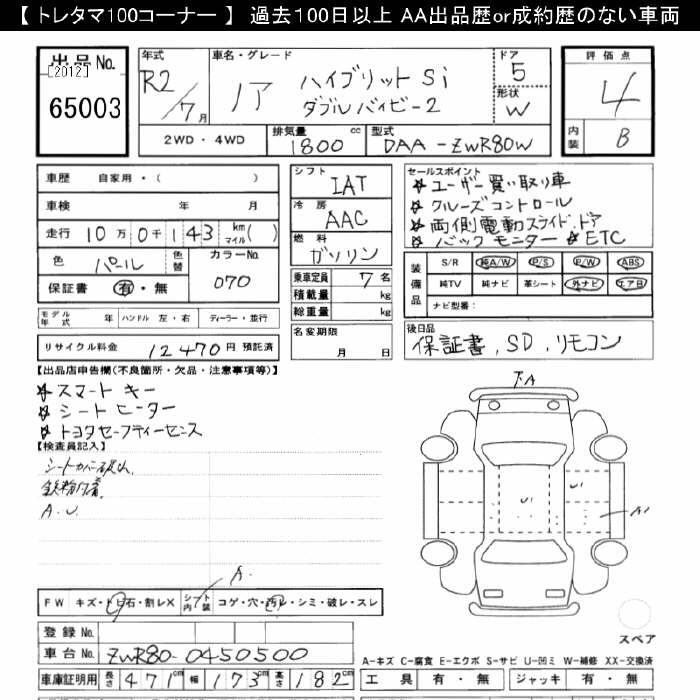 【 トレタマ100コーナー 】 過去100日以上 AA出品歴or成約歴のない車両
出品No.
[2012]
65003
年式
R2/7月
車名・グレード
ノア ハイブリットSi
ダブルバイビー2
ドア
5
形状
W
評価点
4
内装
B
2WD・4WD
排気量
1800cc
型式
DAA-ZWR80W
車歴 自家用・( )
車検 年 月
走行 10万0千143 km マイル( )
色 パール 色替 カラーNo. 070
保証書 有・無
モデル年式 年 ハンドル 左・右 ディーラー・並行
リサイクル料金 12470円 預託済
シフト
IAT
冷房
AAC
燃料
ガソリン
乗車定員 7名
積載量 kg
総重量 kg
名変期限
月 日
セールスポイント
☆ユーザー買い取り車
☆クルーズコントロール
☆両側電動スライドドア
☆バックモニター ☆ETC
装備品
S/R 純A/W P/S P/W ABS
純TV 純ナビ 革シート 外ナビ エアB
ナビ型番:
後日品
保証書、SD、リモコン
【出品店申告欄(不良箇所・欠品・注意事項等)】
☆スマートキー
☆シートヒーター
☆トヨタセーフティーセンス
【検査員記入】
シートカバー破れ
鉄粉付着
A.U
下A
U
U
A1
スペア
A.
FW キズ・トビ石・割レX シート内装 コゲ・穴・汚レ・シミ・破レ・スレ
登録No.
車台No. ZWR80-0450500
車庫証明用 長さ 471cm 幅 173cm 高さ 182cm
A-キズ C-腐食 E-エクボ S-サビ U-凹ミ W-補修 XX-交換済
工具 有・無 ジャッキ 有・無